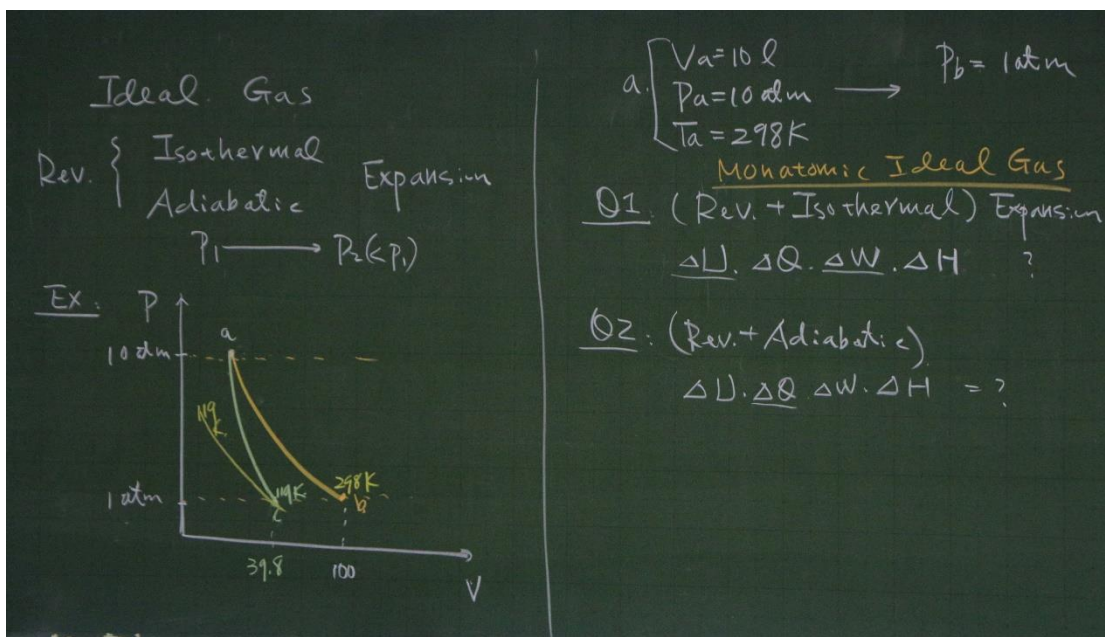 Ideal Gas
Rev. { Isothermal
Adiabatic
Expansion
P₁ ⟶ P₂(<P₁)
Ex:
P
a
10 atm
119 K
119K
298K
1 atm
c
b
39.8
100
V
a. Va=10 l
Pa=10 atm ⟶ Pb= 1 atm
Ta=298K
Monatomic Ideal Gas
Q1: (Rev. + Isothermal) Expansion
ΔU. ΔQ. ΔW. ΔH ?
Q2: (Rev. + Adiabatic)
ΔU. ΔQ ΔW. ΔH = ?